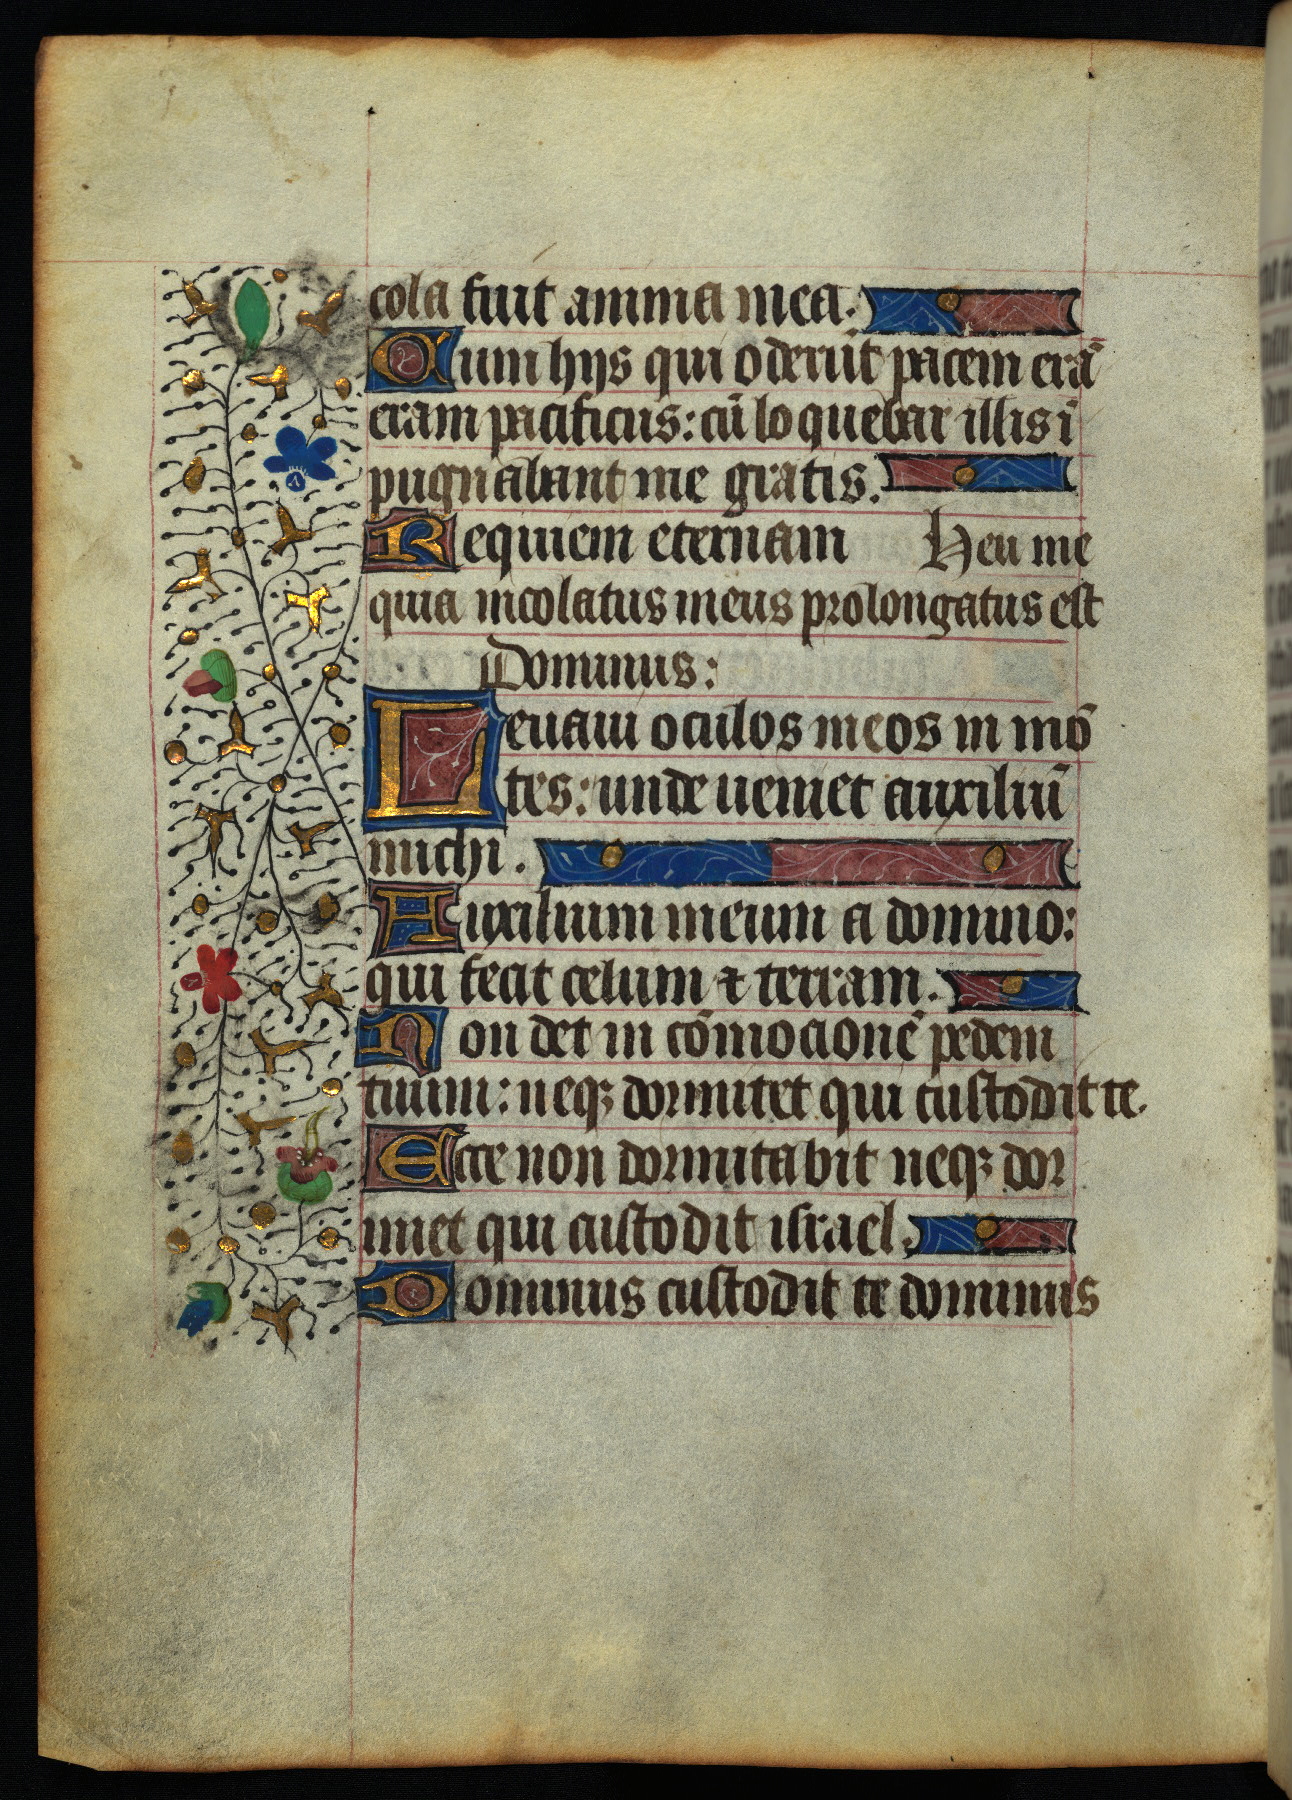 cola fuit anima mea.
Cum hijs qui oderūt pacem erā
eram pacificus: cū loquebar illis ī
pugnabant me gratis.
Requiem eternam Heu me
quia incolatus meus prolongatus est
Dominus:
Leuaui oculos meos in mō
tes: unde ueniet auxiliū
michi.
Auxilium meum a domino:
qui fecit celum ⁊ terram.
Non det in cōmocionē pedem
tuum: neqꝫ dormitet qui custodit te.
Ecce non dormitabit neqꝫ dor
miet qui custodit israel.
Dominus custodit te dominus